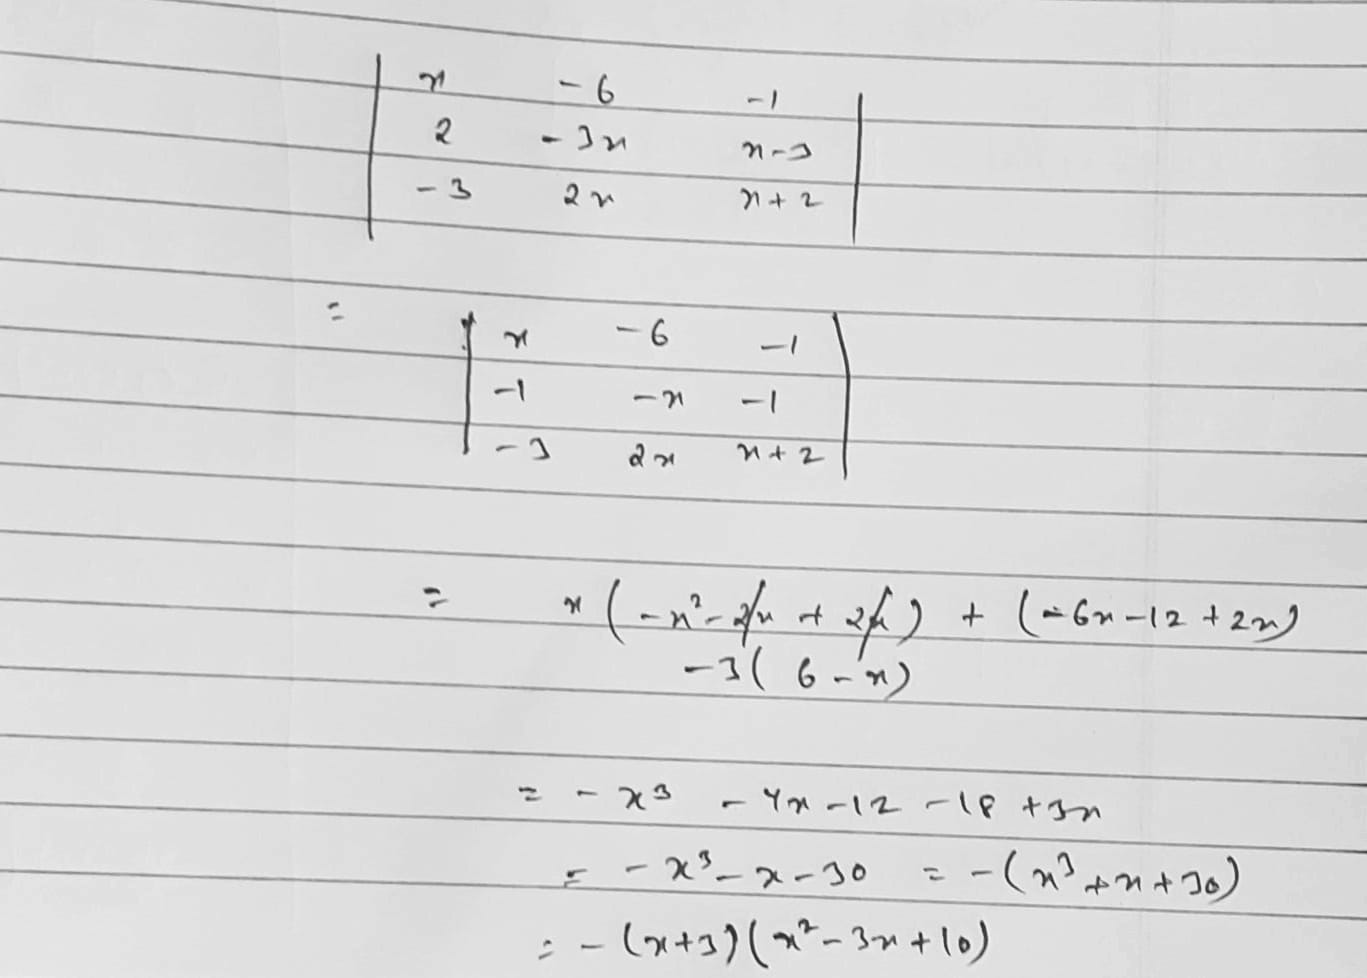 | x -6 -1 |
| 2 -3x x-3 |
| -3 2x x+2 |
= | x -6 -1 |
| -1 -x -1 |
| -3 2x x+2 |
= x(-x²-2x+2x) + (-6x-12+2x)
-3(6-x)
= -x³ -4x-12 -18 +3x
= -x³-x-30 = -(x³+x+30)
= -(x+3)(x²-3x+10)